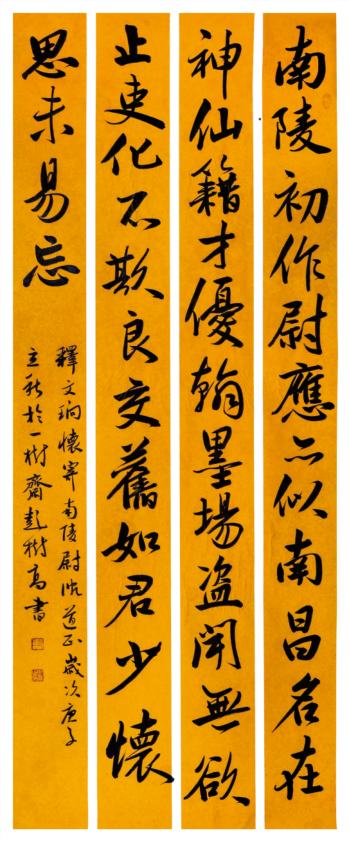 南陵初作尉應亦似南昌名在
神仙籍才優翰墨場盜聞無欲
止吏化不欺良交舊如君少懷
思未易忘
釋文珦懷寄南陵尉沈道正歲次庚子
立秋於一樹齋彭樹高書